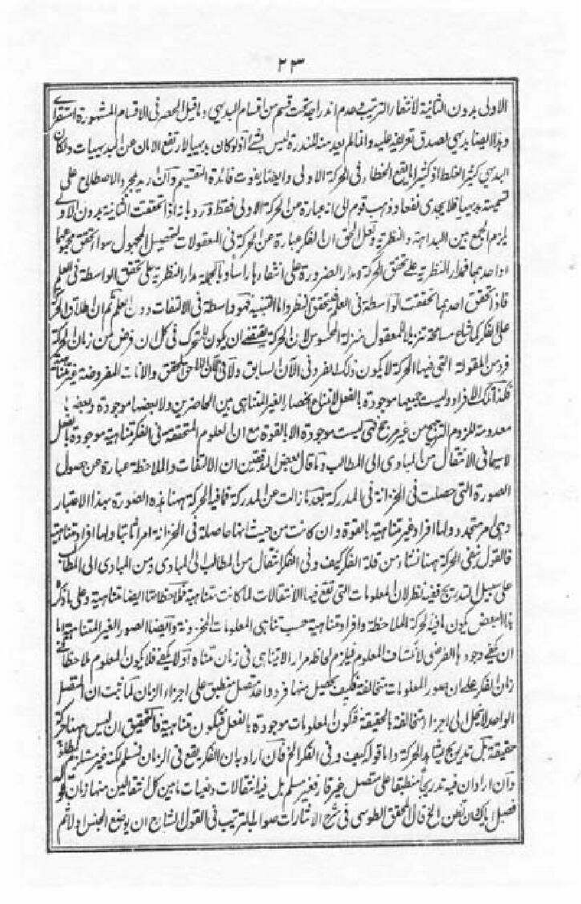 ٢٣
الاولى بدون الثانية لانتفاء الترتيب وعدم اندراجه تحت قسم من اقسام البديهي وما قيل الحصر في الاقسام المشهورة استقرائي
وهذا ايضا بديهي لصدق تعريفه عليه وانما لم يعد منه لندرة ليس بشئ اذ لو كان بديهيا لارتفع الامان عن البديهيات ولكان
البديهي كثير الغلط اذ كثيرا ما يقع الخطأ في الحركة الاولى وايضا يفوت فائدة التقسيم وان اريد مجرد الاصطلاح على
تسميته بديهيا فلا يجدي نفعا وذهب قوم الى انه عبارة عن الحركة الاولى فقط ورد بانه اذا تحققت الثانية بدون الاولى
يلزم الجمع بين البداهة والنظرية ولعل الحق ان الفكر عبارة عن الحركة في المعقولات لتحصيل المجهول سواء تحقق مجموعهما
او احدهما فمدار النظرية على تحقق الحركة ومدار الضرورة على انتفائها راسا وبالجملة مدار النظرية على تحقق الواسطة في العلم
فاذا تحقق احدهما تحققت الواسطة في العلم فيتحقق النظر واما التنبيه فهو واسطة في الالتفات دون العلم ثم ان اطلاق الحركة
على الفكر كما شاع مسامحة تنزيلا للمعقول منزلة المحسوس لان الحركة تقتضي ان يكون للمتحرك في كل ان فرض من زمان الحركة
فرد من المقولة التي فيها الحركة لا يكون ذلك الفرد في الآن السابق ولا في الآن اللاحق والآنات المفروضة غير متناهية
فكذا تلك الافراد وليست جميعها موجودة بالفعل لامتناع انحصار الغير المتناهي بين الحاصرين ولا بعضها موجودة وبعضها
معدومة للزوم الترجيح من غير مرجح فهي ليست موجودة الا بالقوة مع ان العلوم المتحققة في الفكر متناهية موجودة بالفعل
لا سيما في الانتقال من المبادي الى المطالب وما قال بعض المدققين ان الالتفات والملاحظة عبارة عن حصول
الصورة التي حصلت في الخزانة في المدركة بعد ما زالت عن المدركة فما فيه الحركة ههنا هذه الصورة بهذا الاعتبار
وهي امر متجدد ولها افراد غير متناهية بالقوة وان كانت من حيث انها حاصلة في الخزانة امرا ثابتا ولها افراد متناهية
فالقول بنفي الحركة ههنا نشأ من قلة الفكر كيف وفي الفكر انتقال من المطالب الى المبادي ومن المبادي الى المطالب
على سبيل التدريج ففيه نظر لان المعلومات التي تقع فيها الانتقالات لما كانت متناهية فملاحظاتها ايضا متناهية وعلى ما ذكره
هذا البعض يكون ما فيه الحركة الملاحظة وافراد متناهية حسب تناهي المعلومات المخزونة وايضا الصور الغير المتناهية اما
ان يكفي وجودها الفرضي لانكشاف المعلوم فيلزم لحاظه مرارا لا يتناهى في زمان متناه او لا يكفي فلا يكون المعلوم ملاحظا في
زمان الفكر على ان صور المعلومات متخالفة فكيف يحصل منها فرد واحد متصل منطبق على اجزاء الزمان لما ثبت ان المتصل
الواحد لا ينحل الى اجزاء متخالفة بالحقيقة فتكون المعلومات موجودة بالفعل فتكون متناهية فالتحقيق ان ليس ههنا حركة
حقيقة بل تدريج يشابه الحركة واما قوله كيف وفي الفكر الخ فان اراد به ان الفكر يقع في الزمان فمسلم لكنه غير مستلزم للمطلوب
وان اراد ان فيه تدريجا منطبقا على متصل غير قار فغير مسلم بل فيه انتقالات دفعيات ما بين كل انتقالين منها زمان قوله
فصل اياك ان تظن الخ قال المحقق الطوسي في شرح الاشارات صواب الترتيب في القول الشارح ان يوضع الجنس اولا ثم